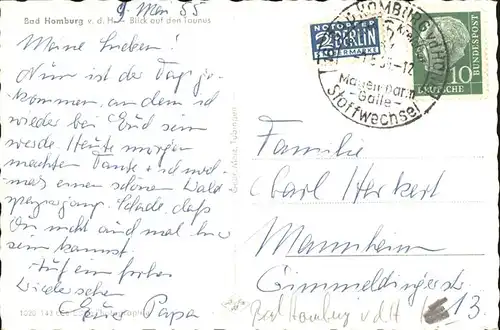 9. Mai 55
Bad Homburg v. d. H. - Blick auf den Taunus
Meine Lieben!
Nun ist der Tag ge-
kommen, an dem ich
wieder bei Euch sein
werde. Heute morgen
machten Tante + ich noch
mal einen schönen Wald
spaziergang. Schade, daß
Du nicht auch mal hier
sein kannst.
Auf ein frohes
Wiedersehen
Euer Papa
NOTOPFER
2 BERLIN
STEUERMARKE
BAD HOMBURG
Magen Darm
- Galle -
Stoffwechsel
10
DEUTSCHE
BUNDESPOST
Familie
Carl Herkert
Mannheim
Gimmeldingerstr
13
Bad Homburg v d H